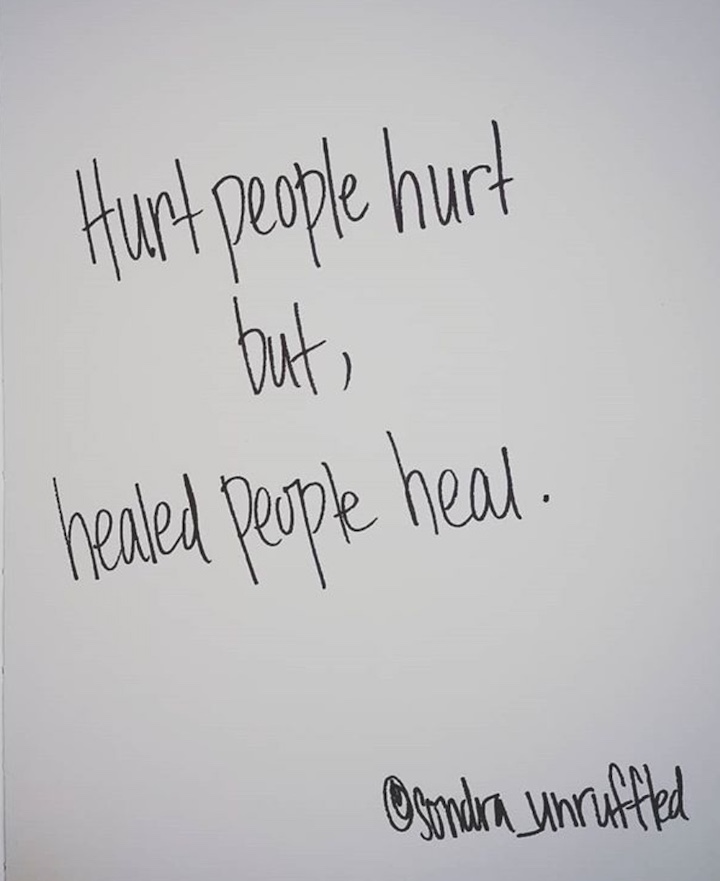 Hurt people hurt
but,
healed people heal.
@sondra_unruffled